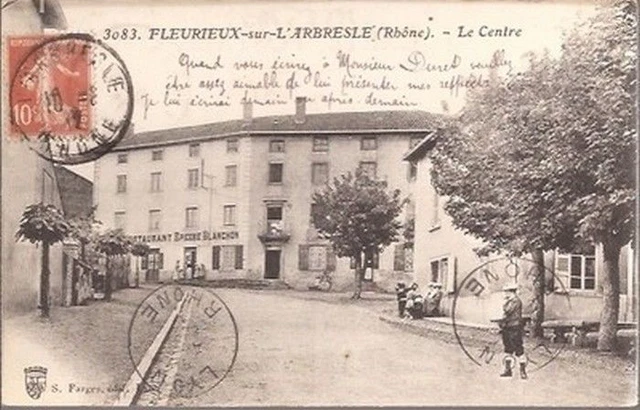 3083. FLEURIEUX-sur-L'ARBRESLE (Rhône). - Le Centre
Quand vous écrirez à Monsieur Durel veuillez
être assez aimable de lui présenter mes respects
Je lui écrirai demain ou après-demain
10
L'ARBRESLE
RHONE
TAURANT BLANCHON
RHONE
LYON
RHONE
LYON
S. Farges, édit.